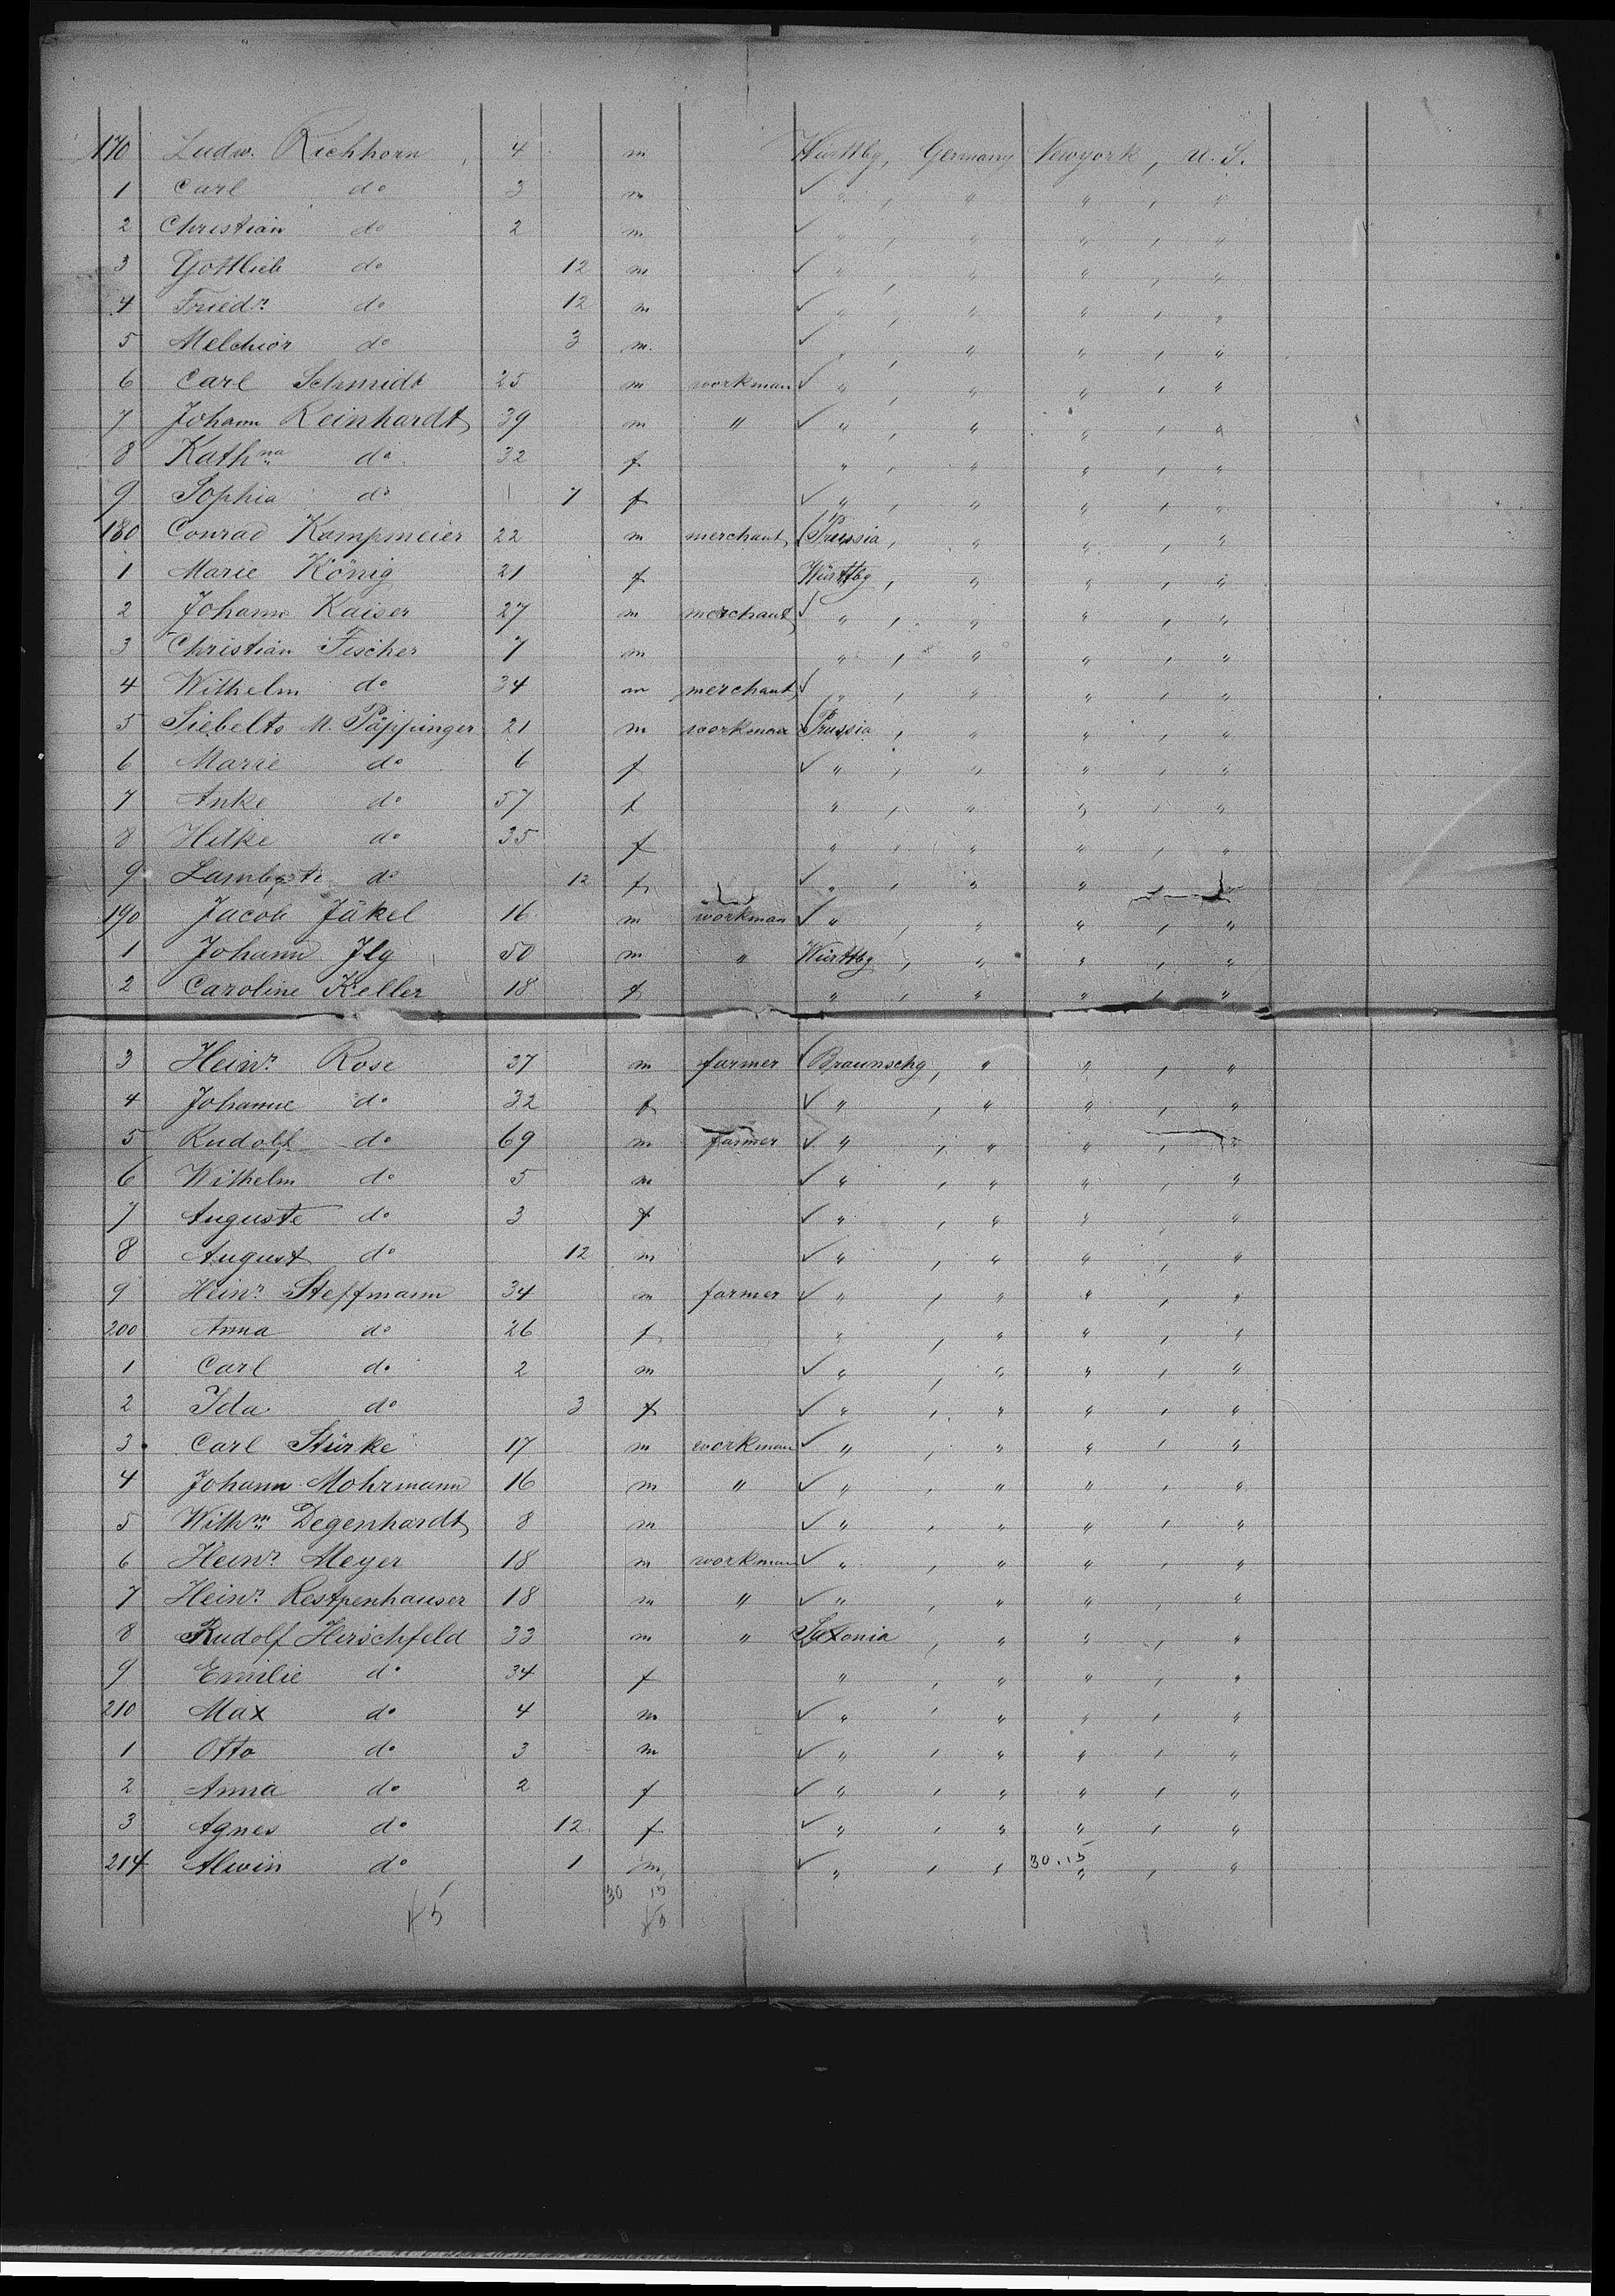 170 Ludw. Richhorn 4 m Württbg, Germany Newyork, U.S.
1 Carl do 3 m ✓ " , " " , "
2 Christian do 2 m ✓ " , " " , "
3 Gottlieb do 12 m ✓ " , " " , "
4 Friedr. do 12 m ✓ " , " " , "
5 Melchior do 3 m. ✓ " , " " , "
6 Carl Schmidt 25 m workman ✓ " , " " , "
7 Johann Reinhardt 39 m " ✓ " , " " , "
8 Kathna do 32 f " , " " , "
9 Sophia do 7 f ✓ " , " " , "
180 Conrad Kampmeier 22 m merchant Prussia, " " , "
1 Marie König 21 f Württbg, " " , "
2 Johann Kaiser 27 m merchant ✓ " , " " , "
3 Christian Fischer 7 m " , " " , "
4 Wilhelm do 34 m merchant ✓ " , " " , "
5 Siebelts M. Päppinger 21 m workman Prussia, " " , "
6 Marie do 6 f ✓ " , " " , "
7 Anke do 57 f " , " " , "
8 Hilke do 35 f " , " " , "
9 do 12 f ✓ " , " " , "
190 Jacob Jäkel 16 m workman ✓ " , " " , "
1 Johann Jlg 50 m " Württbg, " " , "
2 Caroline Keller 18 f " , " " , "
3 Heinr. Rose 37 m farmer Braunschg, " " , "
4 Johanne do 32 f ✓ " , " " , "
5 Rudolf do 69 m farmer ✓ " , " " , "
6 Wilhelm do 5 m ✓ " , " " , "
7 Auguste do 3 f ✓ " , " " , "
8 August do 12 m ✓ " , " " , "
9 Heinr. Steffmann 34 m farmer ✓ " , " " , "
200 Anna do 26 f " , " " , "
1 Carl do 2 m ✓ " , " " , "
2 Ida do 3 f ✓ " , " " , "
3 Carl Stürke 17 m workman ✓ " , " " , "
4 Johann Mohrmann 16 m " ✓ " , " " , "
5 Wilhm Degenhardt 8 m ✓ " , " " , "
6 Heinr. Meyer 18 m workman ✓ " , " " , "
7 Heinr. Restpenhauser 18 m " ✓ " , " " , "
8 Rudolf Hirschfeld 33 m " Saxonia, " " , "
9 Emilie do 34 f " , " " , "
210 Max do 4 m ✓ " , " " , "
1 Otto do 3 m ✓ " , " " , "
2 Anna do 2 f ✓ " , " " , "
3 Agnes do 12 f ✓ " , " " , "
214 Alwin do 1 m ✓ " , " 30.15 " , "
30 15